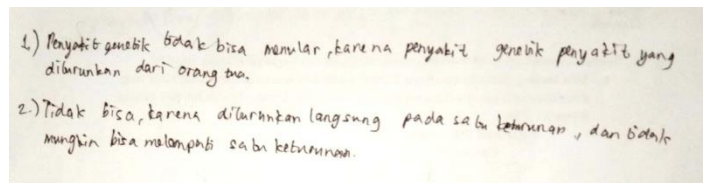 1.) Penyakit genetik tidak bisa menular, karena penyakit genetik penyakit yang
diturunkan dari orang tua.
2.) Tidak bisa, karena diturunkan langsung pada satu keturunan, dan tidak
mungkin bisa melompati satu keturunan.